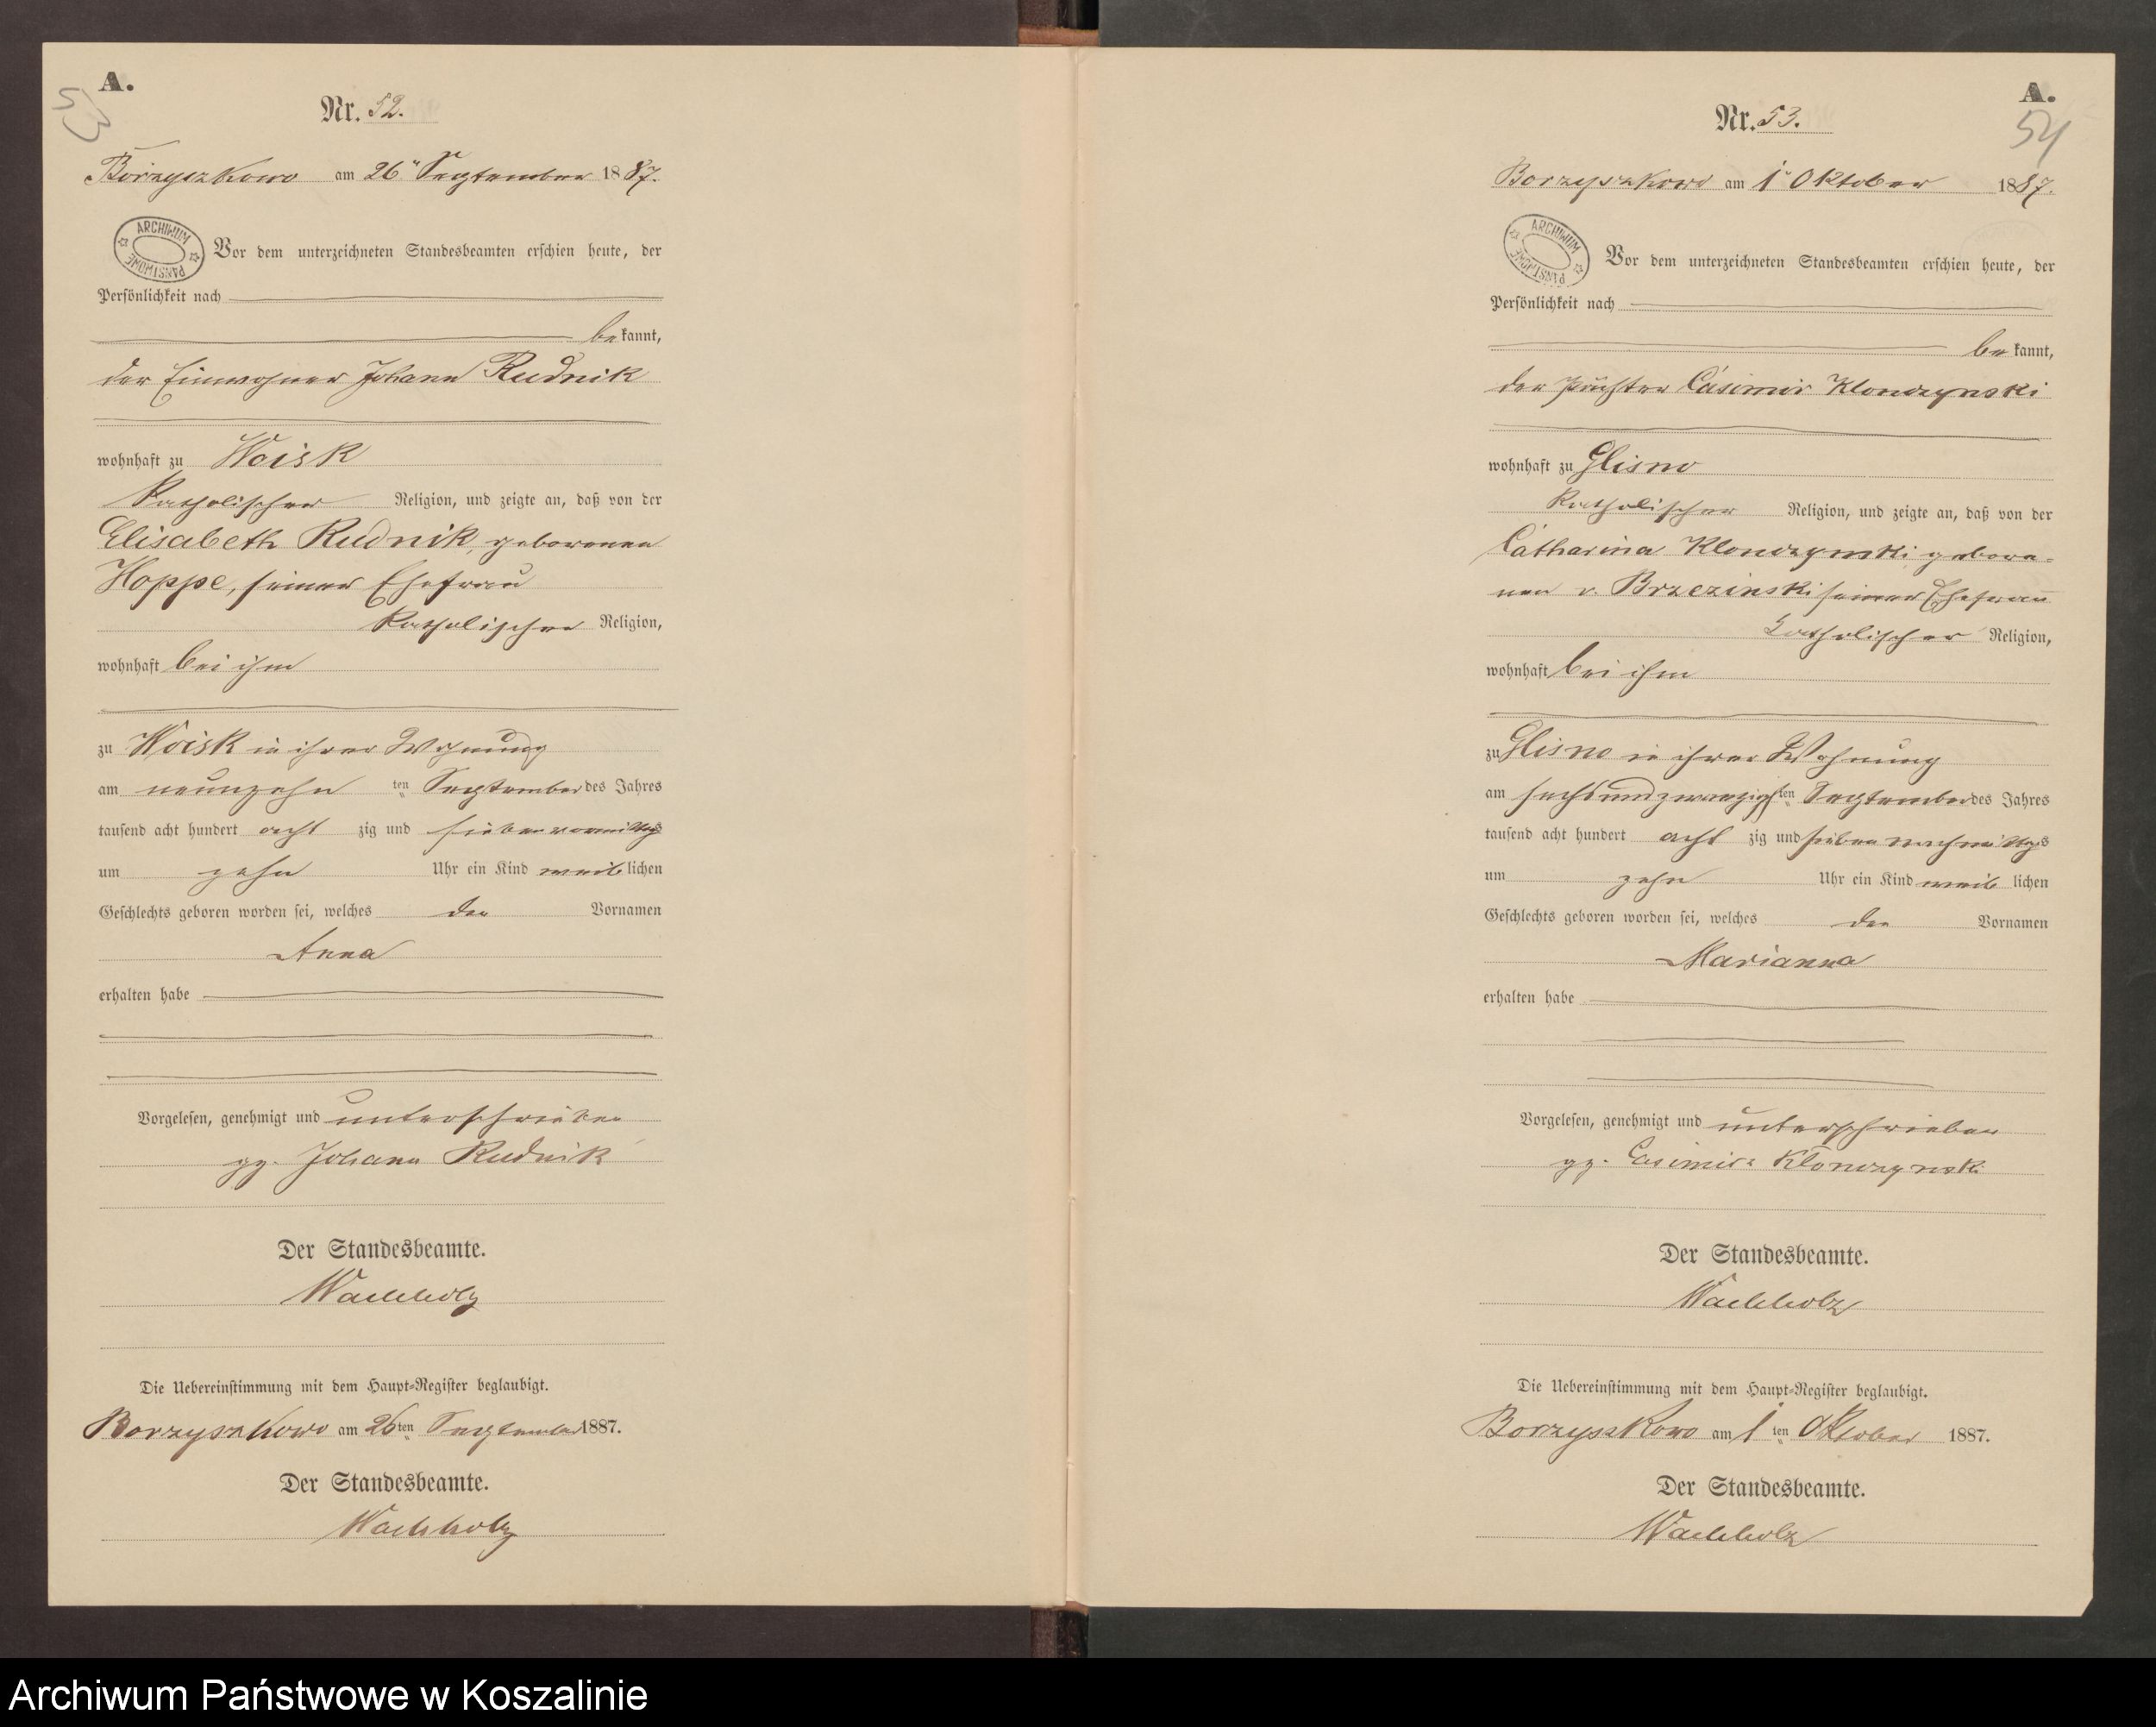 A.
53
Nr. 52.
Borzyszkowo am 26" September 1887.
ARCHIWUM PAŃSTWOWE
Vor dem unterzeichneten Standesbeamten erschien heute, der
Persönlichkeit nach
bekannt,
der Einwohner Johann Rudnik
wohnhaft zu Woisk
katholischer Religion, und zeigte an, daß von der
Elisabeth Rudnik, geborenen
Hoppe, seiner Ehefrau
katholischer Religion,
wohnhaft bei ihm
zu Woisk in ihrer Wohnung
am neunzehn ten September des Jahres
tausend acht hundert acht zig und sieben vormittags
um zehn Uhr ein Kind weiblichen
Geschlechts geboren worden sei, welches den Vornamen
Anna
erhalten habe
Vorgelesen, genehmigt und unterschrieben
gz. Johann Rudnik
Der Standesbeamte.
Wachholz
Die Uebereinstimmung mit dem Haupt-Register beglaubigt.
Borzyszkowo am 26ten September 1887.
Der Standesbeamte.
Wachholz
A.
54
Nr. 53.
Borzyszkowo am 1" Oktober 1887.
ARCHIWUM PAŃSTWOWE
Vor dem unterzeichneten Standesbeamten erschien heute, der
Persönlichkeit nach
bekannt,
der Pächter Casimir Klonczynski
wohnhaft zu Glisno
katholischer Religion, und zeigte an, daß von der
Catharina Klonczynski gebore-
nen v. Brzezinski seiner Ehefrau
katholischer Religion,
wohnhaft bei ihm
zu Glisno in ihrer Wohnung
am sechsundzwanzigsten September des Jahres
tausend acht hundert acht zig und sieben nachmittags
um zehn Uhr ein Kind weib lichen
Geschlechts geboren worden sei, welches den Vornamen
Marianna
erhalten habe
Vorgelesen, genehmigt und unterschrieben
gz. Casimir Klonczynski
Der Standesbeamte.
Wachholz
Die Uebereinstimmung mit dem Haupt-Register beglaubigt.
Borzyszkowo am 1ten Oktober 1887.
Der Standesbeamte.
Wachholz
Archiwum Państwowe w Koszalinie